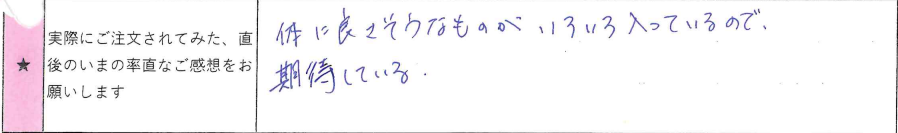 ★
実際にご注文されてみた、直
後のいまの率直なご感想をお
願いします
体に良さそうなものがいろいろ入っているので、
期待している.